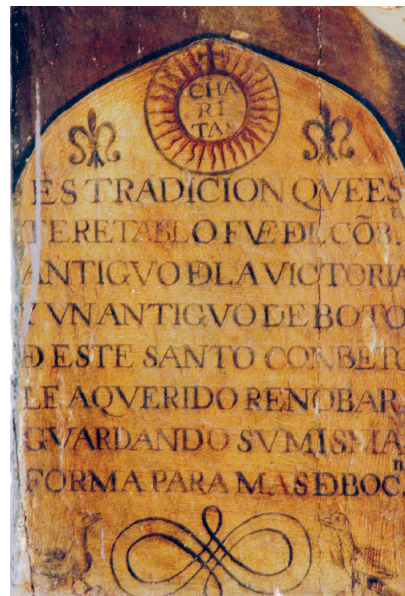 CHA
RI
TAS
ES TRADICION QVE ES
TE RETABLO FVE DL CÕB.ᵗᵒ
ANTIGVO DLA VICTORIA
Y VN ANTIGVO DE BOTO
D ESTE SANTO CONBETO
LE A QVERIDO RENOBAR
GVARDANDO SV MISMA
FORMA PARA MAS DBOCⁿ.